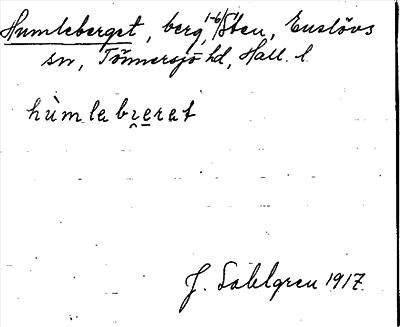 Humleberget, berg, 1-6/Sten, Enslövs
sn, Tönnersjö hd, Hall. l.
hùmlabrerat
J. Sahlgren 1917.